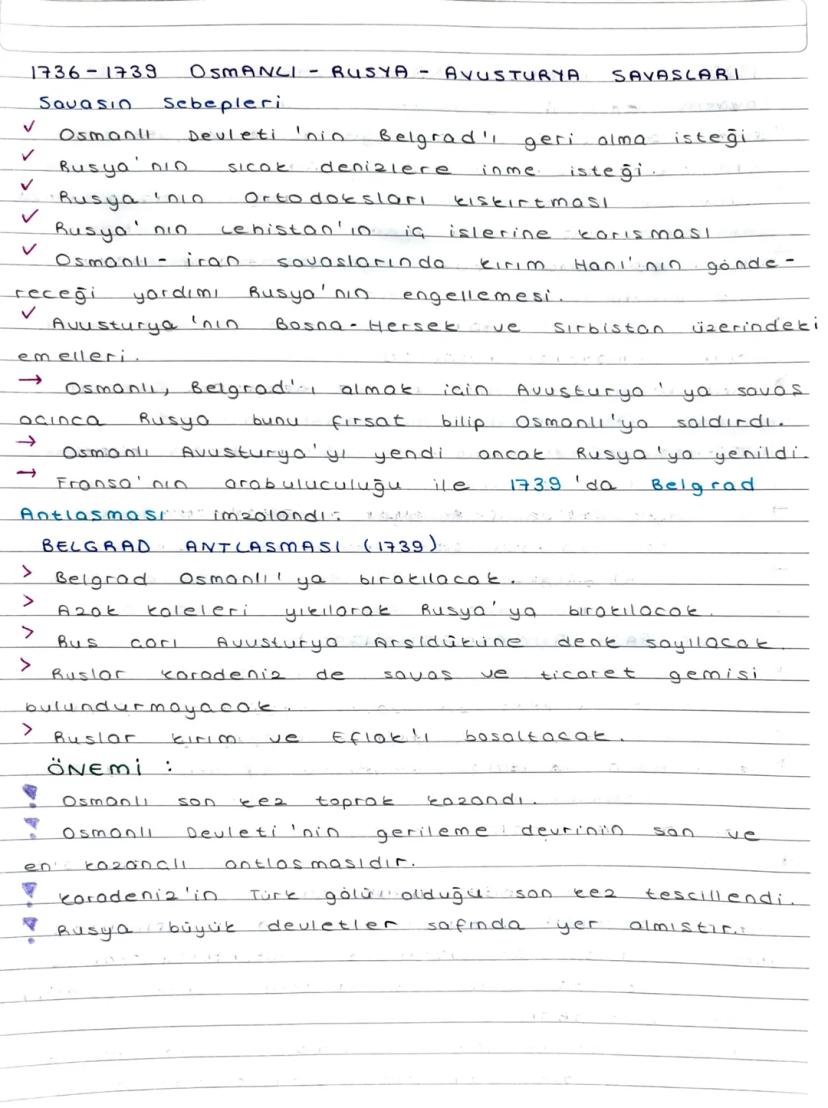 1736-1739 OSMANLI - RUSYA - AVUSTURYA SAVASLARI
Savasın Sebepleri
✓ Osmanlı Devleti'nin Belgrad'ı geri alma isteği
✓ Rusya'nın sıcak denizlere inme isteği.
✓ Rusya'nın Ortodoksları kıskırtması
✓ Rusya'nın Lehistan'ın iç islerine karısması
✓ Osmanlı - iran savaslarında kırım Hanı'nın gönde-
receği yardımı Rusya'nın engellemesi.
✓ Avusturya'nın Bosna-Hersek ve Sırbistan üzerindeki
emelleri.
→ Osmanlı, Belgrad'ı almak için Avusturya'ya savas
açınca Rusya bunu fırsat bilip Osmanlı'ya saldırdı.
→ Osmanlı Avusturya'yı yendi ancak Rusya'ya yenildi.
→ Fransa'nın arabuluculuğu ile 1739'da Belgrad
Antlasması imzalandı.
BELGRAD ANTLASMASI (1739)
> Belgrad Osmanlı'ya bırakılacak.
> Azak kaleleri yıkılarak Rusya'ya bırakılacak.
> Rus çarı Avusturya Arsidükine denk sayılacak.
> Ruslar karadeniz de savas ve ticaret gemisi
bulundurmayacak.
> Ruslar kırım ve Eflak'ı bosaltacak.
ÖNEMİ :
! Osmanlı son kez toprak kazandı.
! Osmanlı Devleti'nin gerileme devrinin son ve
en kazançlı antlasmasıdır.
! karadeniz'in Türk gölü olduğu son kez tescillendi.
! Rusya büyük devletler safında yer almıstır.